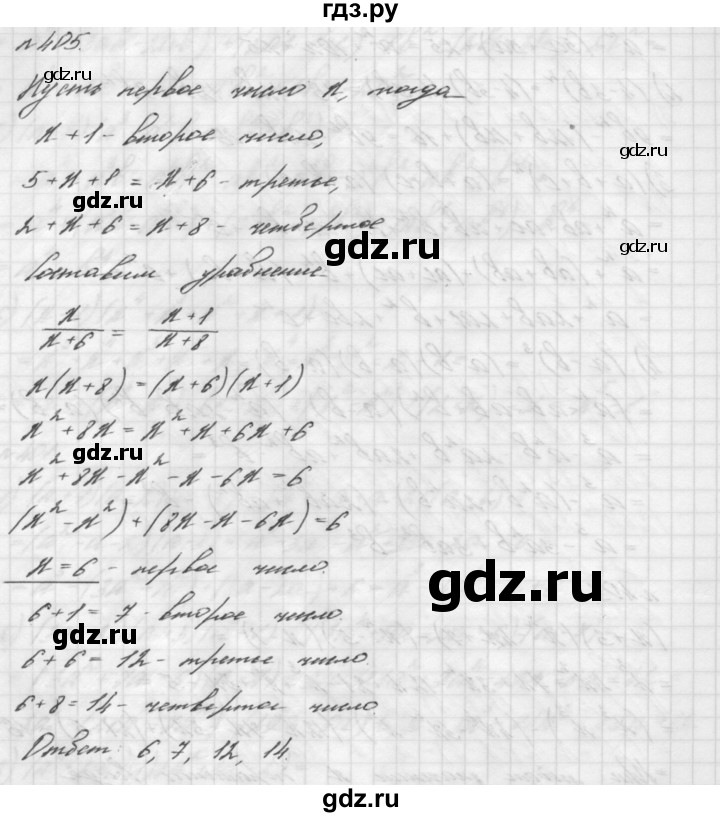 гдз.ру
№405.
Пусть первое число x, тогда
gdz.ru
x+1 - второе число,
gdz.ru
5+x+1 = x+6 - третье,
gdz.ru
2+x+6 = x+8 - четвертое
gdz.ru
gdz.ru
Составим уравнение.
x/(x+6) = (x+1)/(x+8)
x(x+8) = (x+6)(x+1)
x²+8x = x²+x+6x+6
gdz.ru
x²+8x-x²-x-6x=6
(x²-x²)+(8x-x-6x)=6
x=6 - первое число.
gdz.ru
6+1=7 - второе число.
gdz.ru
6+6=12 - третье число.
6+8=14 - четвертое число.
Ответ: 6, 7, 12, 14.
gdz.ru